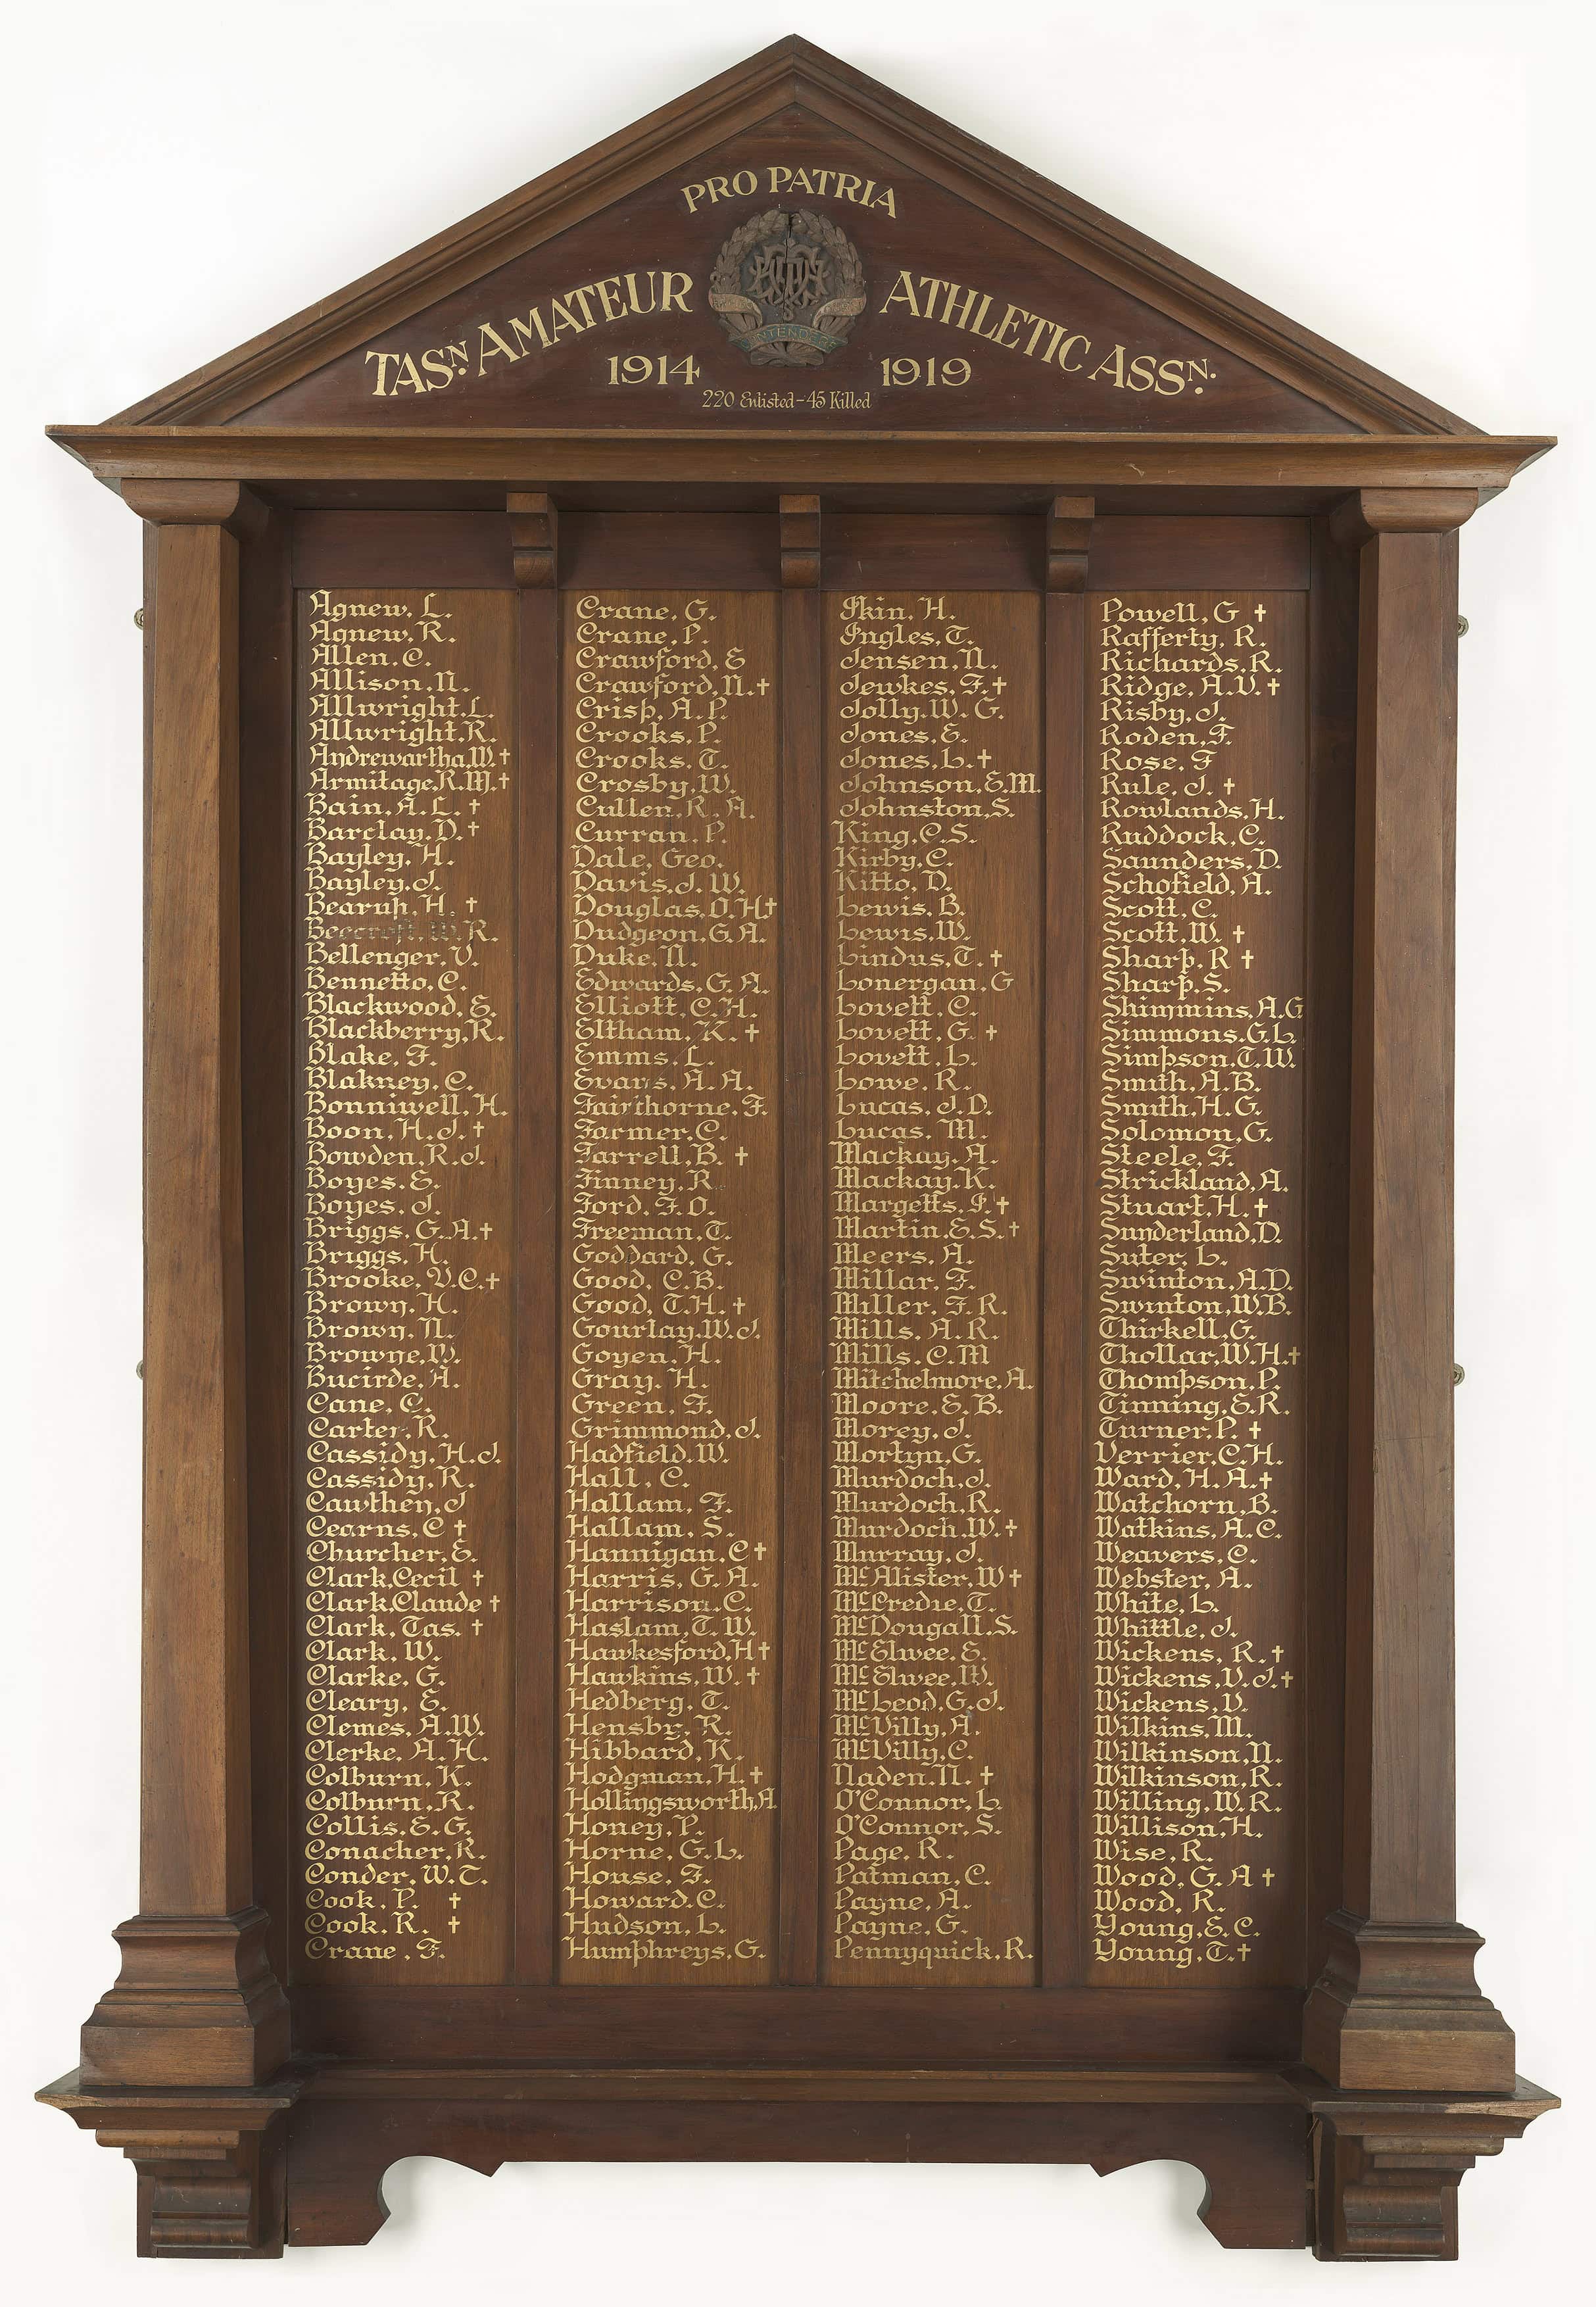 PRO PATRIA
TASN. AMATEUR ATHLETIC ASSN.
INTENDE
1914 1919
220 Enlisted – 45 Killed
Agnew. L.
Agnew. R.
Allen. C.
Allison. N.
Allwright. L.
Allwright. R.
Andrewartha. W. †
Armitage. R. M. †
Bain. A. L. †
Barclay. D. †
Bayley. H.
Bayley. J.
Bearup. H. †
Beecroft. W. R.
Bellenger. V.
Bennetto. C.
Blackwood. E.
Blackberry. R.
Blake. F.
Blakney. C.
Bonniwell. H.
Boon. H. J. †
Bowden. R. J.
Boyes. E.
Boyes. J.
Briggs. G. A. †
Briggs. H.
Brooke. V. C. †
Brown. H.
Brown. N.
Browne. W.
Bucirde. H.
Cane. C.
Carter. R.
Cassidy. H. J.
Cassidy. R.
Cawthen. J
Cearns. C †
Churcher. E.
Clark. Cecil †
Clark. Claude †
Clark. Tas. †
Clark. W.
Clarke. G.
Cleary. E.
Clemes. A. W.
Clerke. A. H.
Colburn. K.
Colburn. R.
Collis. E. G.
Conacher. R.
Conder. W. T.
Cook. P. †
Cook. R. †
Crane. F.
Crane. G.
Crane. P.
Crawford. E
Crawford. N. †
Crisp. A. P.
Crooks. P.
Crooks. T.
Crosby. W.
Cullen. R. A.
Curran. P.
Dale. Geo.
Davis. J. W.
Douglas. O. H †
Dudgeon. G. A.
Duke. N.
Edwards. G. A.
Elliott. C. H.
Eltham. K. †
Emms. L.
Evans. A. A.
Fairthorne. F.
Farmer. C.
Farrell. B. †
Finney. R.
Ford. F. O.
Freeman. T.
Goddard. G.
Good. C. B.
Good. T. H. †
Gourlay. W. J.
Goyen. H.
Gray. H.
Green. F.
Grimmond. J.
Hadfield. W.
Hall. C.
Hallam. F.
Hallam. S.
Hannigan. C †
Harris. G. A.
Harrison. C.
Haslam. T. W.
Hawkesford. H †
Hawkins. W. †
Hedberg. T.
Hensby. R.
Hibbard. K.
Hodgman. H. †
Hollingsworth. A
Honey. P.
Horne. G. L.
House. F.
Howard. C.
Hudson. L.
Humphreys. G.
Ikin. H.
Ingles. T.
Jensen. N.
Jewkes. F. †
Jolly. W. G.
Jones. E.
Jones. L. †
Johnson. E. M.
Johnston. S.
King. C. S.
Kirby. C.
Kitto. D.
Lewis. B.
Lewis. W.
Lindus. T. †
Lonergan. G
Lovett. C.
Lovett. G. †
Lovett. L.
Lowe. R.
Lucas. J. D.
Lucas. M.
Mackay. A.
Mackay. K.
Margetts. I. †
Martin. E. S. †
Meers. A.
Millar. F.
Miller. F. R.
Mills. A. R.
Mills. C. M
Mitchelmore. A.
Moore. E. B.
Morey. J.
Mortyn. G.
Murdoch. J.
Murdoch. R.
Murdoch. W. †
Murray. J.
McAlister. W †
McCredie. T.
McDougall. S.
McElwee. E.
McElwee. W.
McLeod. G. J.
McVilly. A.
McVilly. C.
Naden. N. †
O'Connor. L
O'Connor. S.
Page. R.
Patman. C.
Payne. A.
Payne. G.
Pennyquick. R.
Powell. G †
Rafferty. R.
Richards. R.
Ridge. A. V. †
Risby. J.
Roden. F.
Rose. F
Rule. J. †
Rowlands. H.
Ruddock. C.
Saunders. D.
Schofield. A.
Scott. C.
Scott. W. †
Sharp. R †
Sharp. S.
Shimmins. A. G
Simmons. G. L.
Simpson. T. W.
Smith. A. B.
Smith. H. G.
Solomon. G.
Steele. F.
Strickland. A.
Stuart. H. †
Sunderland. D.
Suter. L.
Swinton. A. D.
Swinton. W. B.
Thirkell. G.
Thollar. W. H. †
Thompson. P.
Tinning. E. R.
Turner. P. †
Verrier. C. H.
Ward. H. A. †
Watchorn. B.
Watkins. A. C.
Weavers. C.
Webster. A.
White. L.
Whittle. J.
Wickens. R. †
Wickens. V. J. †
Wickens. V.
Wilkins. M.
Wilkinson. N.
Wilkinson. R.
Willing. W. R.
Willison. H.
Wise. R.
Wood. G. A †
Wood. R.
Young. E. C.
Young. T. †